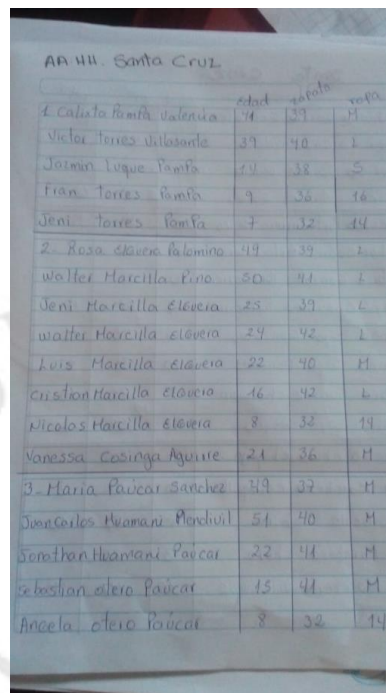 AA.HH. Santa Cruz
edad zapato ropa
1. Calixta Pampa Valencia 41 39 M
Victor torres Villasante 39 40 L
Jazmin Luque Pampa 14 38 S
Fran torres Pampa 9 36 16
Jeni torres Pampa 7 32 14
2. Rosa elguera Palomino 49 39 L
Walter Marcilla Pino 50 41 L
Jeni Marcilla Elguera 25 39 L
walter Marcilla elguera 24 42 L
Luis Marcilla elguera 22 40 M
cristian Marcilla elguera 16 42 L
Nicolas Marcilla elguera 8 32 14
Vanessa Cosinga Aguirre 21 36 M
3. Maria Paucar Sanchez 49 37 M
Juan Carlos Huamani Mendivil 51 40 M
Jonathan Huamani Paucar 22 41 M
sebastian otero Paucar 15 41 M
Angela otero Paucar 8 32 14